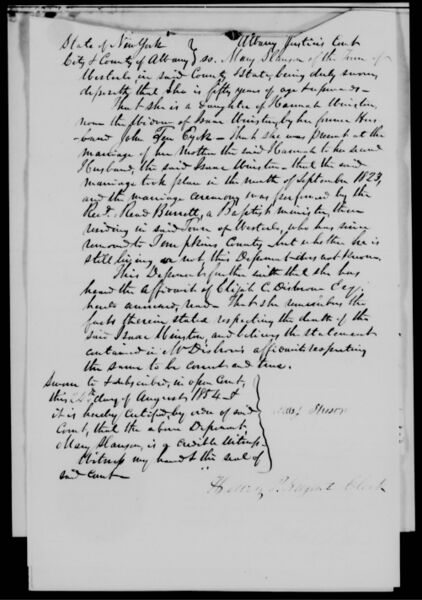 State of New York Albany Justice's Court
City & County of Albany } ss. Mary Slauson of the Town of
Westerlo, in said County & State, being duly sworn,
deposeth that she is fifty years of age & upwards —
That she is a daughter of Hannah Winston,
now the Widow of Isaac Winston, by her former Hus-
band John Ten Eyck — That she was present at the
marriage of her mother the said Hannah to her second
Husband, the said Isaac Winston — that the said
marriage took place in the month of September 1823,
and the marriage ceremony was performed by the
Revd. Read Burritt, a Baptist minister, then
residing in said Town of Westerlo, who has since
removed to Tompkins County, but whether he is
still living or not, this Deponent does not know.
This Deponent further saith that she has
heard the affidavit of Elijah C. Disbrow Esq.
hereto annexed, read — That she remembers the
facts therein stated respecting the death of the
said Isaac Winston, and believes the statement
contained in Mr Disbrow's affidavit respecting
the same to be correct and true.
Sworn to & subscribed, in open Court,
this day of August, 1854 — &
it is hereby certified, by order of said
Court, that the above Deponent,
Mary Slauson, is a credible Witness —
Witness my hand & the seal of
said Court —
Clerk